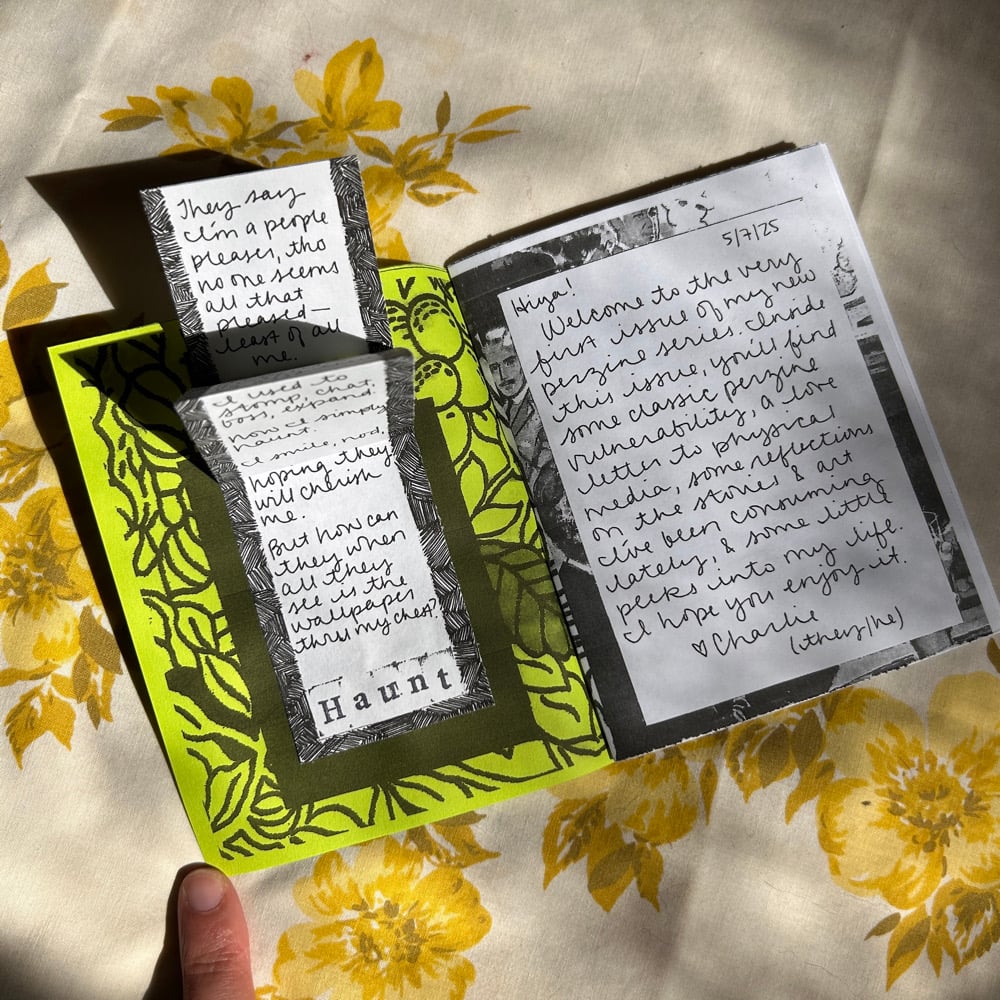 They say
I'm a people
pleaser, tho
no one seems
all that
pleased—
least of all
me.
I used to
stomp, chat,
boss, expand.
now I simply
haunt.
I smile, nod
hoping they
will cherish
me.
But how can
they when
all they
see is the
wallpaper
thru my chest?
Haunt
5/7/25
Hiya!
Welcome to the very
first issue of my new
perzine series. Inside
this issue, you'll find
some classic perzine
vulnerability, a love
letter to physical
media, some reflections
on the stories & art
I've been consuming
lately, & some little
peeks into my life.
I hope you enjoy it.
♡ Charlie
(they/he)